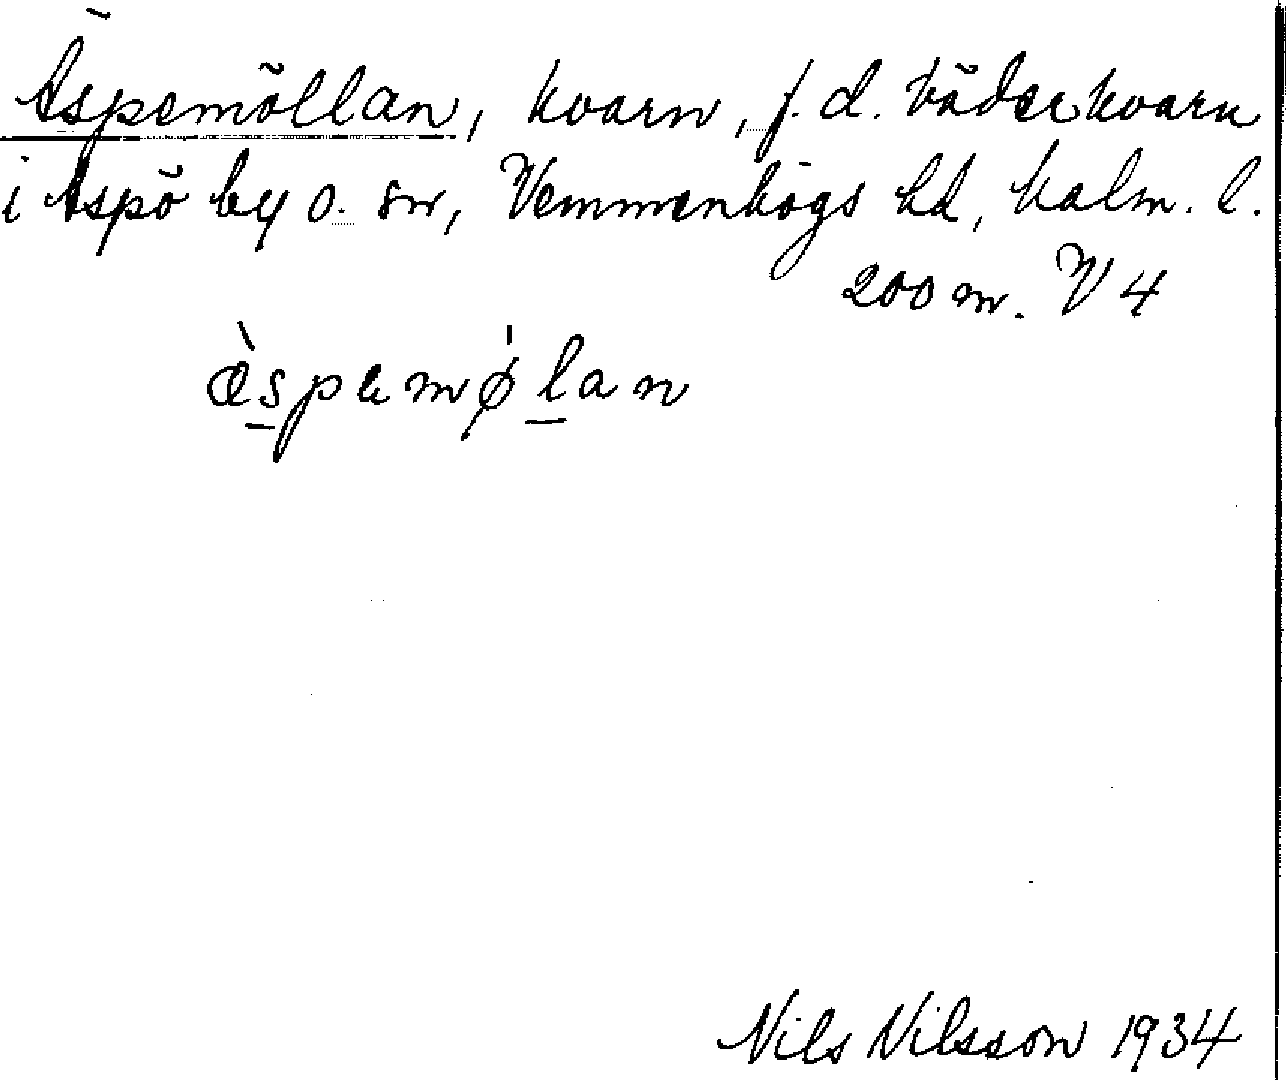 Äspemöllan, kvarn, f. d. väderkvarn
i Äspö by o. sn, Vemmenhögs hd, Malm. l.
200 m. V 4
ὰspemǿlan
Nils Nilsson 1934